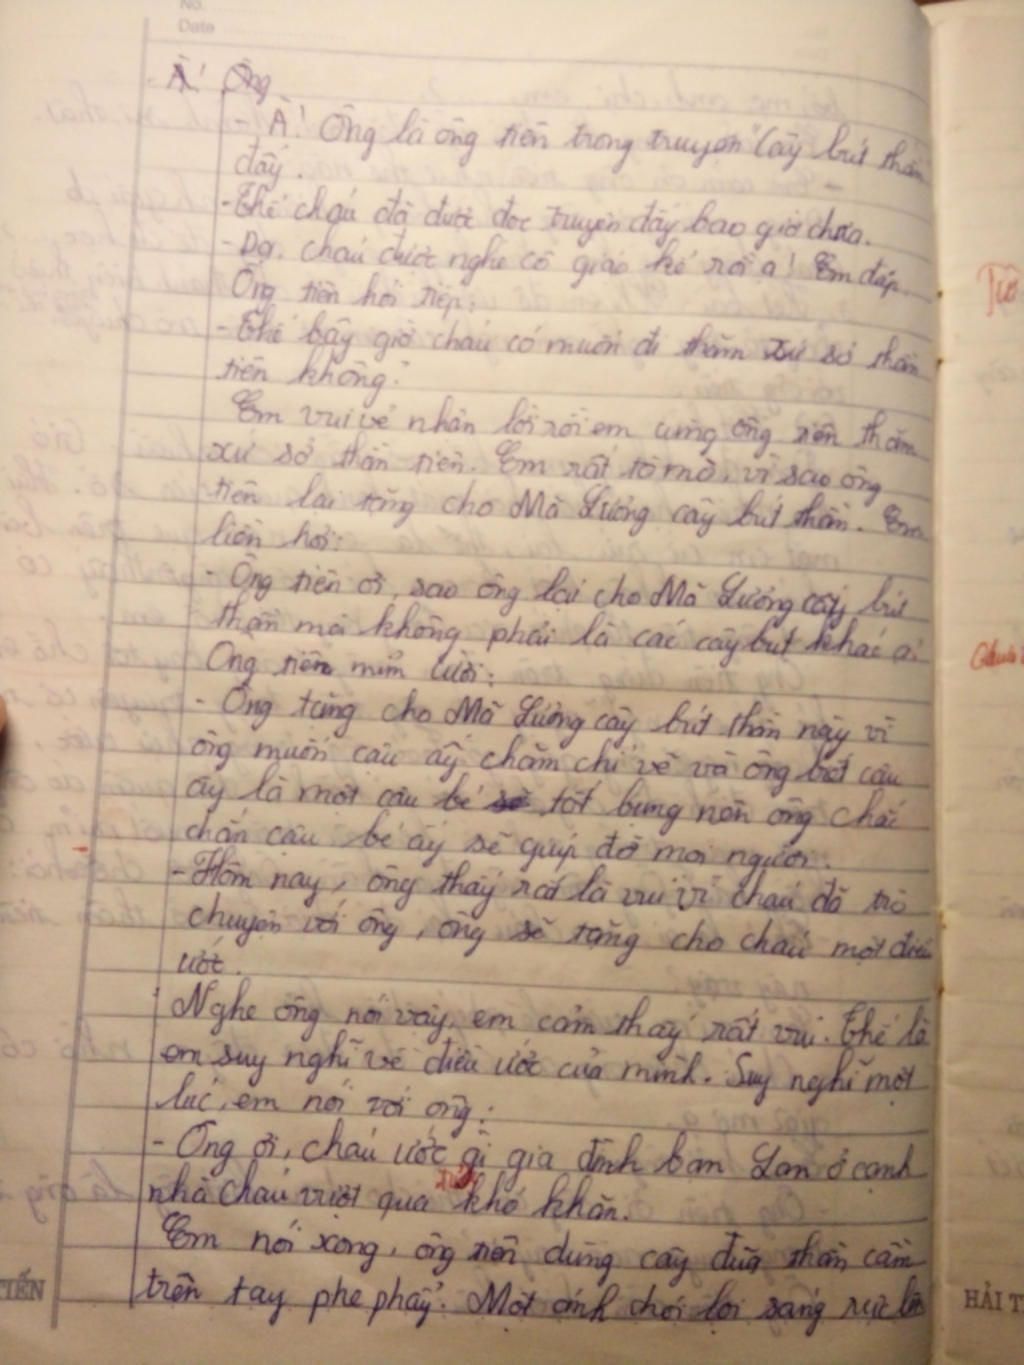 No.
Date
- À! Ông
- À! Ông là ông tiên trong truyện "Cây bút thần
đấy.
- Thế cháu đã được đọc truyện đấy bao giờ chưa.
- Dạ, cháu được nghe cô giáo kể rồi ạ! Em đáp.
Ông tiên hỏi tiếp:
- Thế bây giờ cháu có muốn đi thăm xứ sở thần
tiên không?
Em vui vẻ nhận lời rồi em cùng ông tiên thăm
xứ sở thần tiên. Em rất tò mò, vì sao ông
tiên lại tặng cho Mã Lương cây bút thần. Em
liền hỏi:
- Ông tiên ơi, sao ông lại cho Mã Lương cây bút
thần mà không phải là các cây bút khác ạ?
Ông tiên mỉm cười:
- Ông tặng cho Mã Lương cây bút thần này vì
ông muốn cậu ấy chăm chỉ vẽ và ông biết cậu
ấy là một cậu bé tốt bụng nên ông chắc
chắn cậu bé ấy sẽ giúp đỡ mọi người.
- Hôm nay, ông thấy rất là vui vì cháu đã trò
chuyện với ông, ông sẽ tặng cho cháu một điều
ước.
Nghe ông nói vậy, em cảm thấy rất vui. Thế là
em suy nghĩ về điều ước của mình. Suy nghĩ một
lúc, em nói với ông:
- Ông ơi, cháu ước gì gia đình bạn Lan ở cạnh
nhà cháu vượt qua khó khăn.
Em nói xong, ông tiên dùng cây đũa thần cầm
trên tay phe phẩy. Một ánh chói lọi sáng rực lên
TIẾN
HẢI T